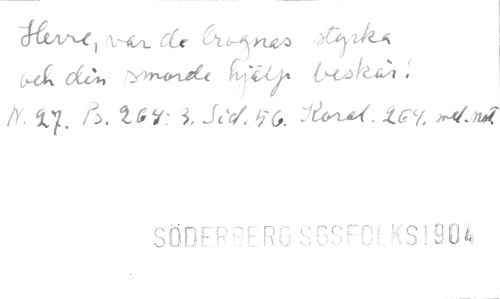 Herre, var de trognas styrka
och din smorde hjälp beskär!
N. 27. B. 264: 3. Sid. 56. Koral. 264. mel. not.
SÖDERBERG SGSFOLKS1904